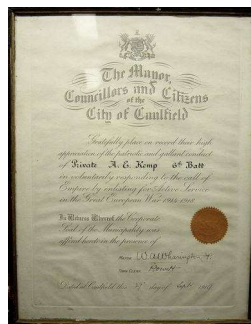 The Mayor,
Councillors and Citizens
of the
City of Caulfield
Gratefully place on record their high
appreciation of the patriotic and gallant conduct
of Private A. E. Kemp 6th Batt
in voluntarily responding to the call of
Empire by enlisting for Active Service
in the Great European War 1914-1918
In Witness Whereof, the Corporate
Seal of the Municipality was
affixed hereto in the presence of
Mayor
Town Clerk
Dated at Caulfield this day of